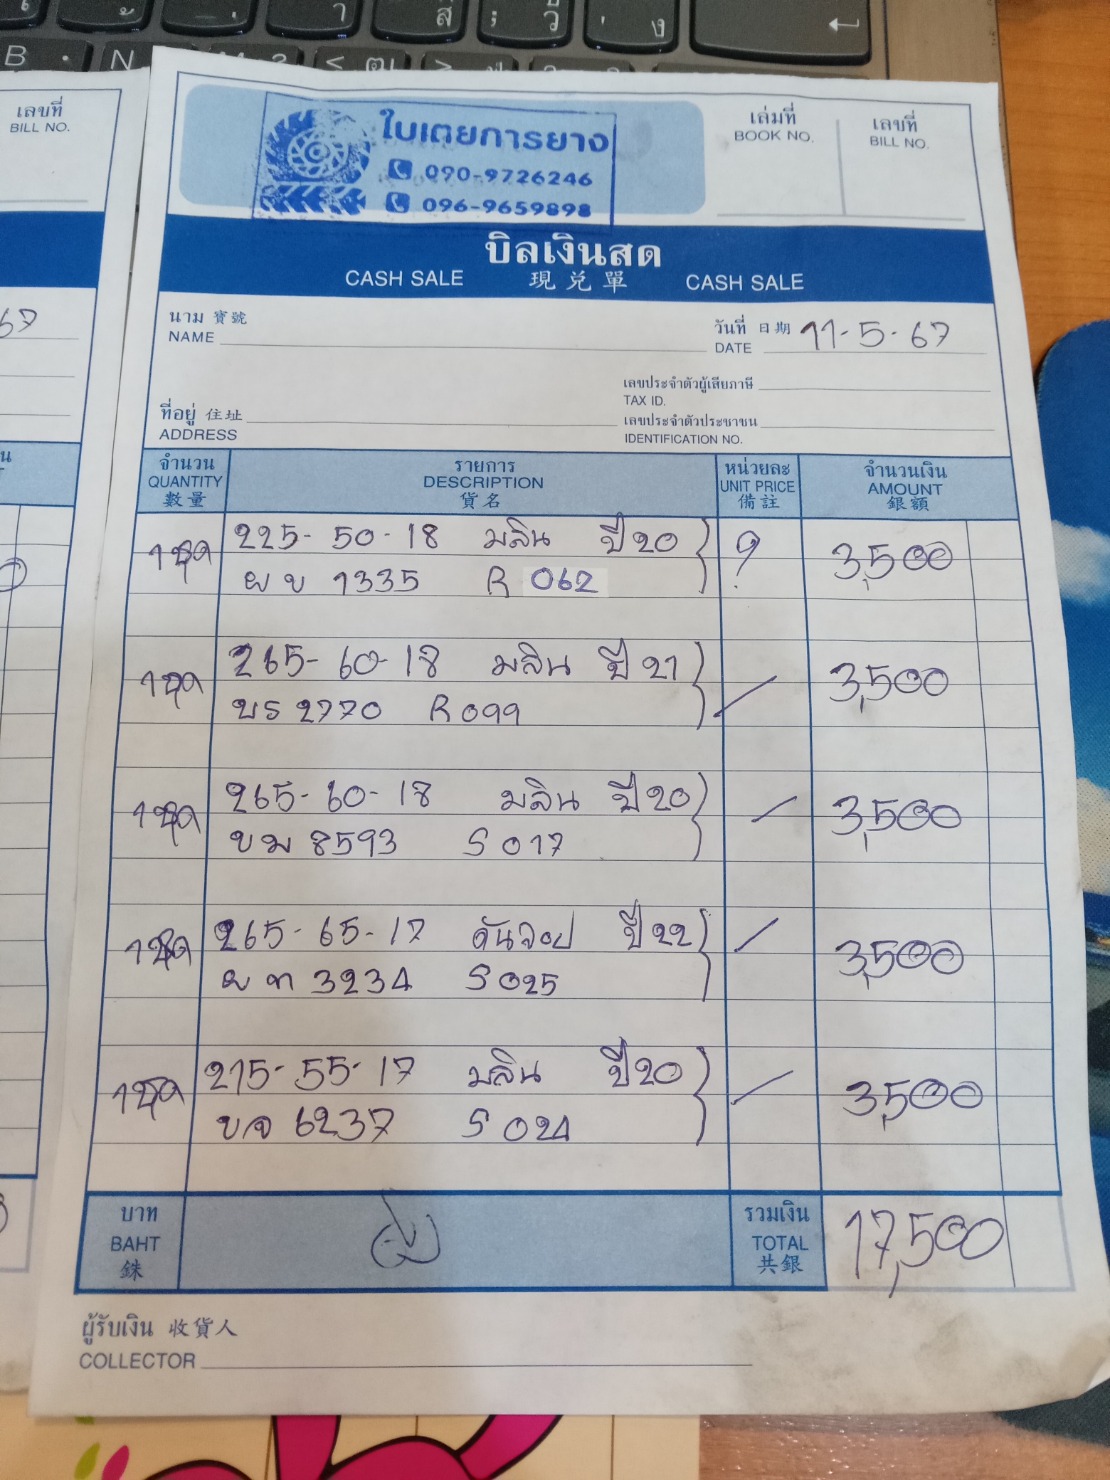 เลขที่
BILL NO.
ใบเตยการยาง
090-9726246
096-9659898
เล่มที่
BOOK NO.
เลขที่
BILL NO.
บิลเงินสด
CASH SALE 現兌單 CASH SALE
นาม 寶號
NAME
วันที่ 日期 11-5-67
DATE
เลขประจำตัวผู้เสียภาษี
TAX ID.
ที่อยู่ 住址
ADDRESS
เลขประจำตัวประชาชน
IDENTIFICATION NO.
จำนวน รายการ หน่วยละ จำนวนเงิน
QUANTITY DESCRIPTION UNIT PRICE AMOUNT
數量 貨名 備註 銀額
1ชุด 225-50-18 มลิน ปี20 ? 3,500
ผข 1335 R 062
1ชุด 265-60-18 มลิน ปี21 3,500
บร 2770 R099
1ชุด 265-60-18 มลิน ปี20 3,500
ขม 8593 S017
1ชุด 265-65-17 ดันลอป ปี22 3,500
ผท 3234 S025
1ชุด 215-55-17 มลิน ปี20 3,500
ขจ 6237 S024
บาท รวมเงิน
BAHT TOTAL 17,500
銖 共銀
ผู้รับเงิน 收貨人
COLLECTOR